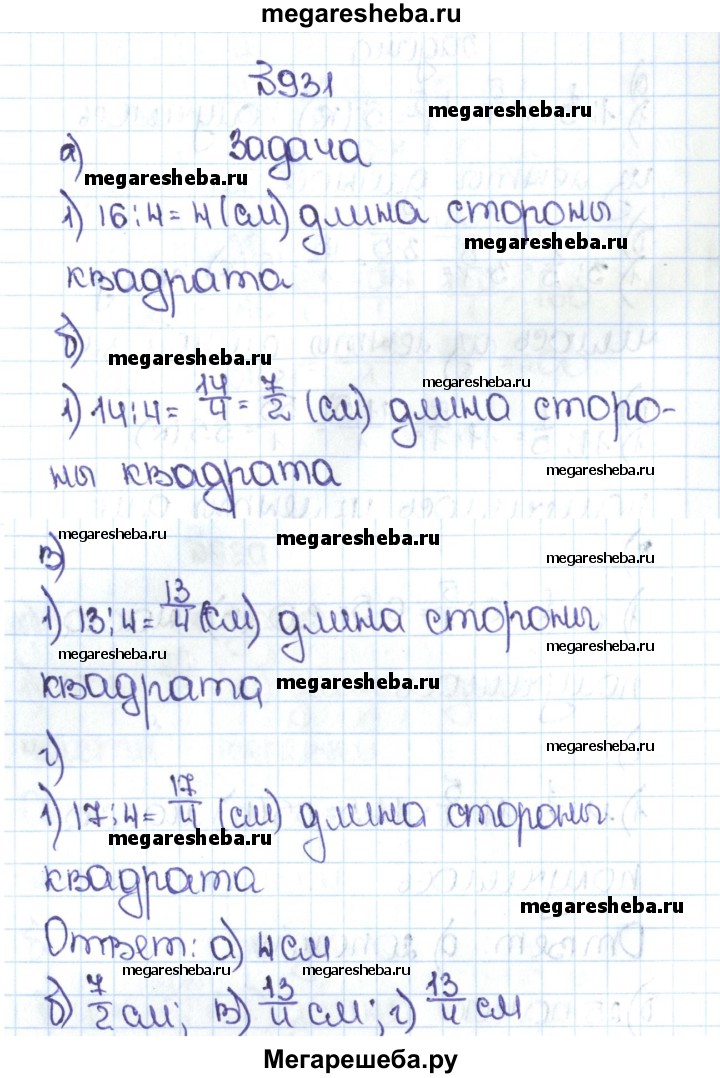 megaresheba.ru
№931
megaresheba.ru
а) Задача
megaresheba.ru
1) 16:4=4 (см) длина стороны
megaresheba.ru
квадрата
б)
megaresheba.ru
megaresheba.ru
1) 14:4= 14/4 = 7/2 (см) длина сторо-
ны квадрата
megaresheba.ru
megaresheba.ru
megaresheba.ru
megaresheba.ru
в)
1) 13:4= 13/4 (см) длина стороны
megaresheba.ru
megaresheba.ru
квадрата
megaresheba.ru
г)
megaresheba.ru
1) 17:4= 17/4 (см) длина стороны
megaresheba.ru
квадрата
megaresheba.ru
Ответ: а) 4 см
megaresheba.ru
megaresheba.ru
б) 7/2 см; в) 13/4 см; г) 13/4 см
Мегарешеба.ру